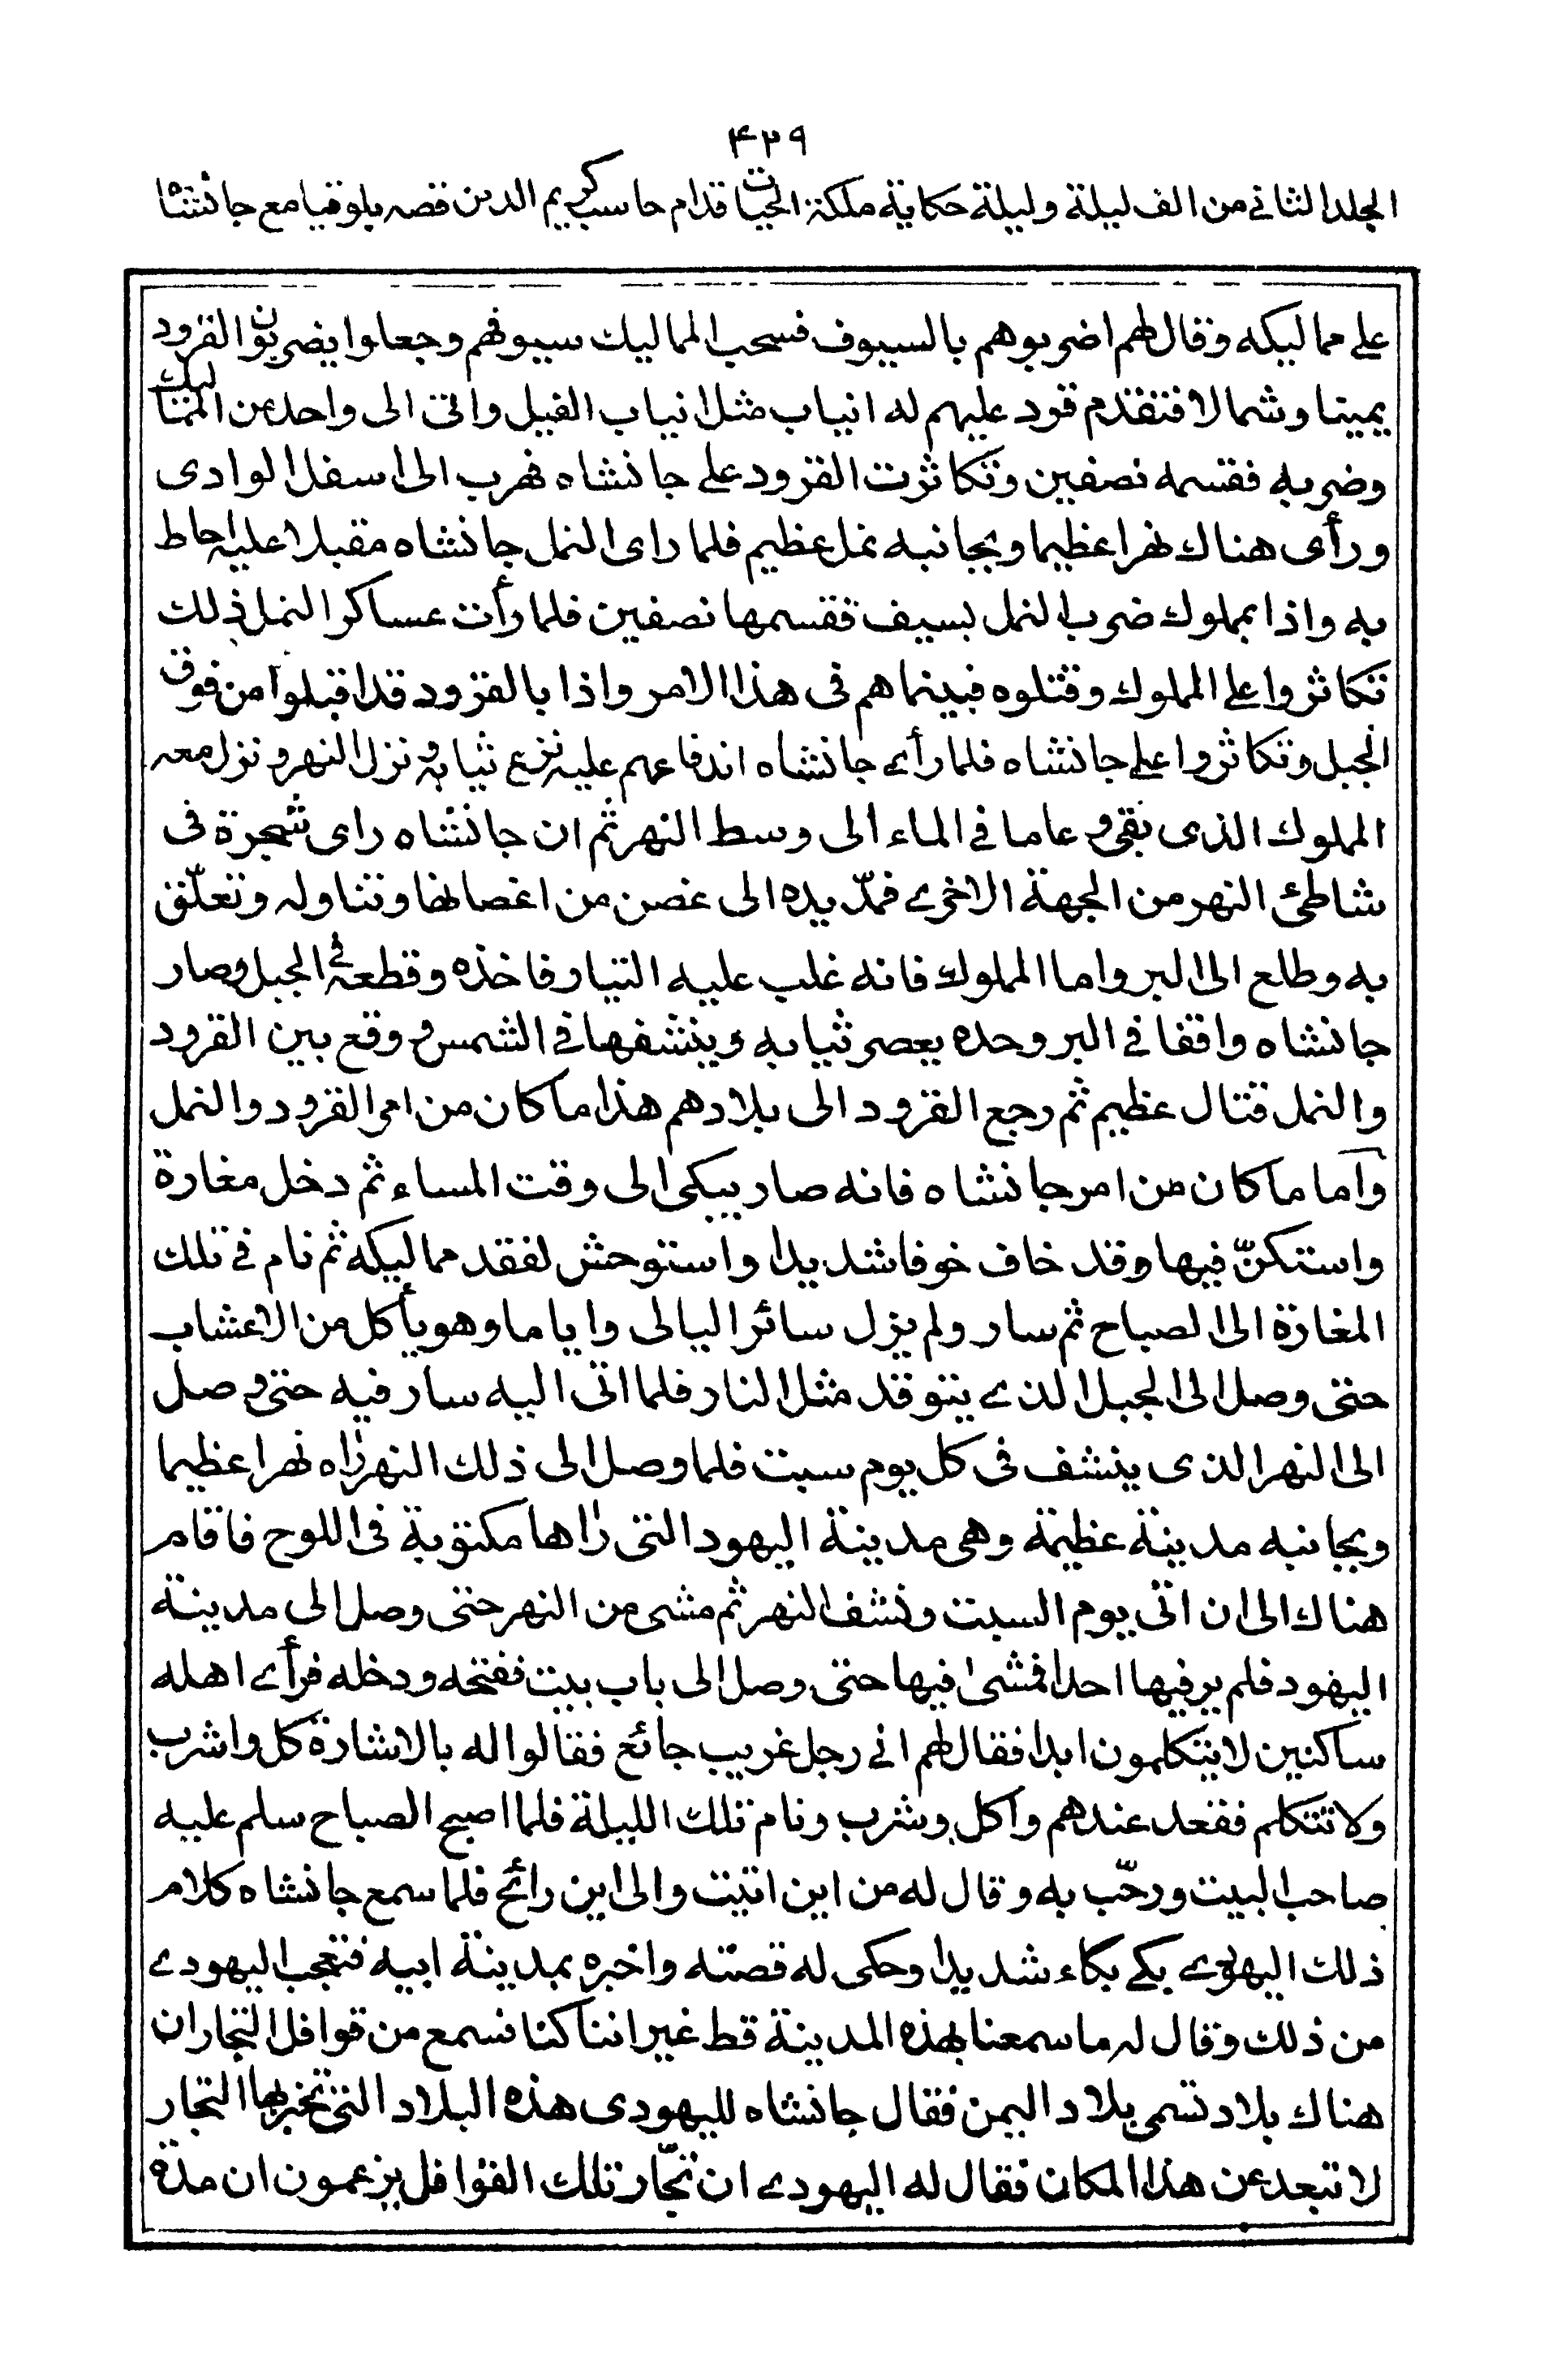 ۴۲۹
المجلد الثاني من الف ليلة وليلة حكاية ملكة الحيات قدام حاسب كريم الدين قصه بلوقيا مع جانشاه
على مماليكه وقال لهم اضربوهم بالسيوف فسحب المماليك سيوفهم وجعلوا يضربون القرود
يمينا وشمالا فتقدم قرد عليهم له انياب مثل انياب الفيل واتى الى واحد من المماليك
وضربه فقسمه نصفين وتكاثرت القرود على جانشاه فهرب الى اسفل الوادى
ورأى هناك نهرا عظيما وبجانبه نمل عظيم فلما راى النمل جانشاه مقبلا عليه احاط
به واذا بمملوك ضرب النمل بسيف فقسمها نصفين فلما رأت عساكر النمل ذلك
تكاثروا على المملوك وقتلوه فبينما هم فى هذا الامر واذا بالقرود قد اقبلوا من فوق
الجبل وتكاثروا على جانشاه فلما رأى جانشاه اندفاعهم عليه نزع ثيابه ونزل النهر ونزل معه
المملوك الذى بقى وعاما في الماء الى وسط النهر ثم ان جانشاه راى شجرة فى
شاطئ النهر من الجهة الاخرى فمدّ يده الى غصن من اغصانها وتناوله وتعلّق
به وطلع الى البر واما المملوك فانه غلب عليه التيار فاخذه وقطعه في الجبل وصار
جانشاه واقفا في البر وحده يعصر ثيابه وينشفها في الشمس ووقع بين القرود
والنمل قتال عظيم ثم رجع القرود الى بلادهم هذا ما كان من امر القرود والنمل
وآما ما كان من امر جانشاه فانه صار يبكى الى وقت المساء ثم دخل مغارة
واستكنّ فيها وقد خاف خوفا شديدا واستوحش لفقد مماليكه ثم نام في تلك
المغارة الى الصباح ثم سار ولم يزل سائرا ليالى وايا ما وهو يأكل من الاعشاب
حتى وصل الى الجبل الذى يتوقد مثل النار فلما اتى اليه سار فيه حتى وصل
الى النهر الذى ينشف فى كل يوم سبت فلما وصل الى ذلك النهر رٰاه نهرا عظيما
وبجانبه مدينة عظيمة وهى مدينة اليهود التى رٰاها مكتوبة فى اللوح فاقام
هناك الى ان اتى يوم السبت ونشف النهر ثم مشى من النهر حتى وصل الى مدينة
اليهود فلم ير فيها احدا فمشى فيها حتى وصل الى باب بيت ففتحه ودخله فرأى اهله
ساكتين لا يتكلمون ابدا فقال لهم انى رجل غريب جائع فقالوا له بالاشارة كل واشرب
ولا تتكلم فقعد عندهم واكل وشرب ونام تلك الليلة فلما اصبح الصباح سلم عليه
صاحب البيت ورحّب به وقال له من اين اتيت والى اين رائح فلما سمع جانشاه كلام
ذلك اليهودى بكى بكاء شديدا وحكى له قصته واخبره بمدينة ابيه فتعجب اليهودى
من ذلك وقال له ما سمعنا بهذه المدينة قط غير اننا كنا نسمع من قوافل التجار ان
هناك بلاد تسمى بلاد اليمن فقال جانشاه لليهودى هذه البلاد التى تخبر بها التجار
لا تبعد عن هذا المكان فقال له اليهودى ان تجّار تلك القوافل يزعمون ان مدة